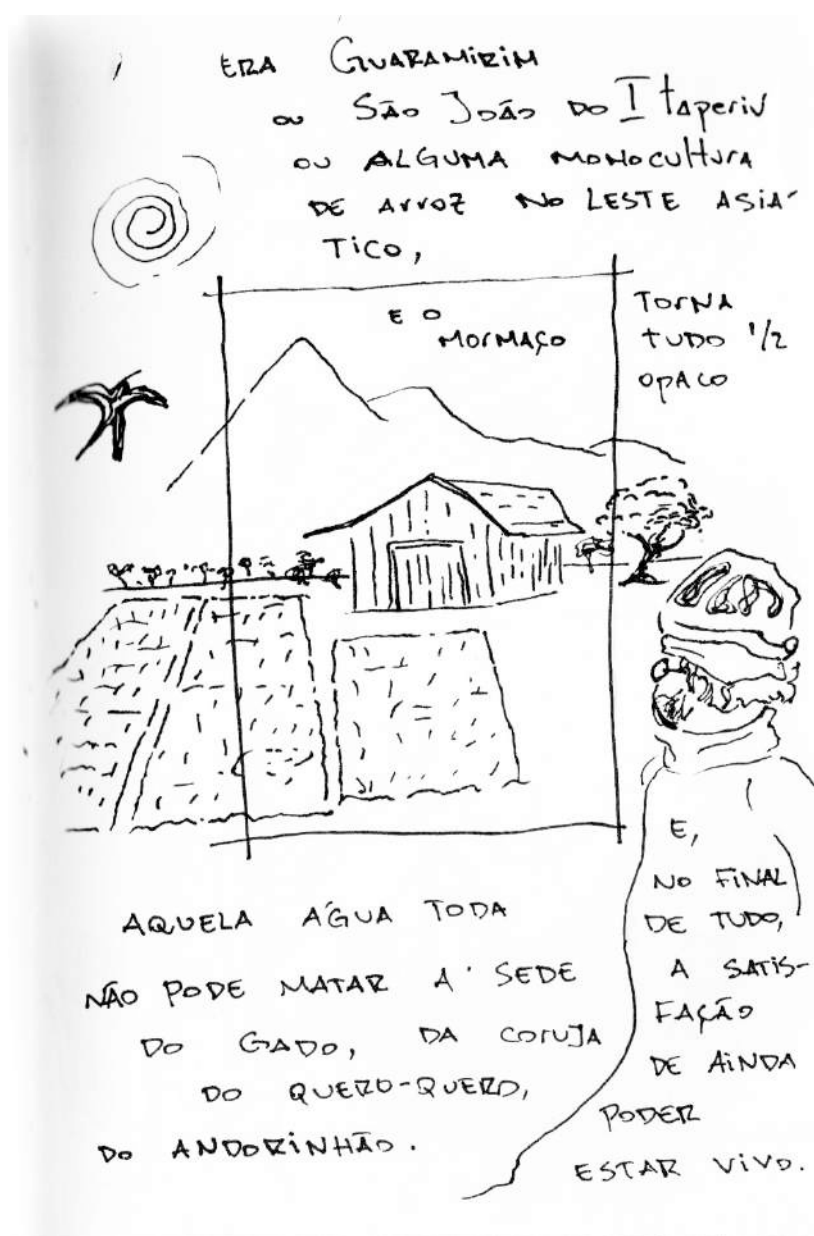 ERA GUARAMIRIM
OU SÃO JOÃO DO ITAPERIÚ
OU ALGUMA MONOCULTURA
DE ARROZ NO LESTE ASIÁ-
TICO,
E O
MORMAÇO
TORNA
TUDO 1/2
OPACO
AQUELA ÁGUA TODA
NÃO PODE MATAR A SEDE
DO GADO, DA CORUJA
DO QUERO-QUERO,
DO ANDORINHÃO.
E,
NO FINAL
DE TUDO,
A SATIS-
FAÇÃO
DE AINDA
PODER
ESTAR VIVO.